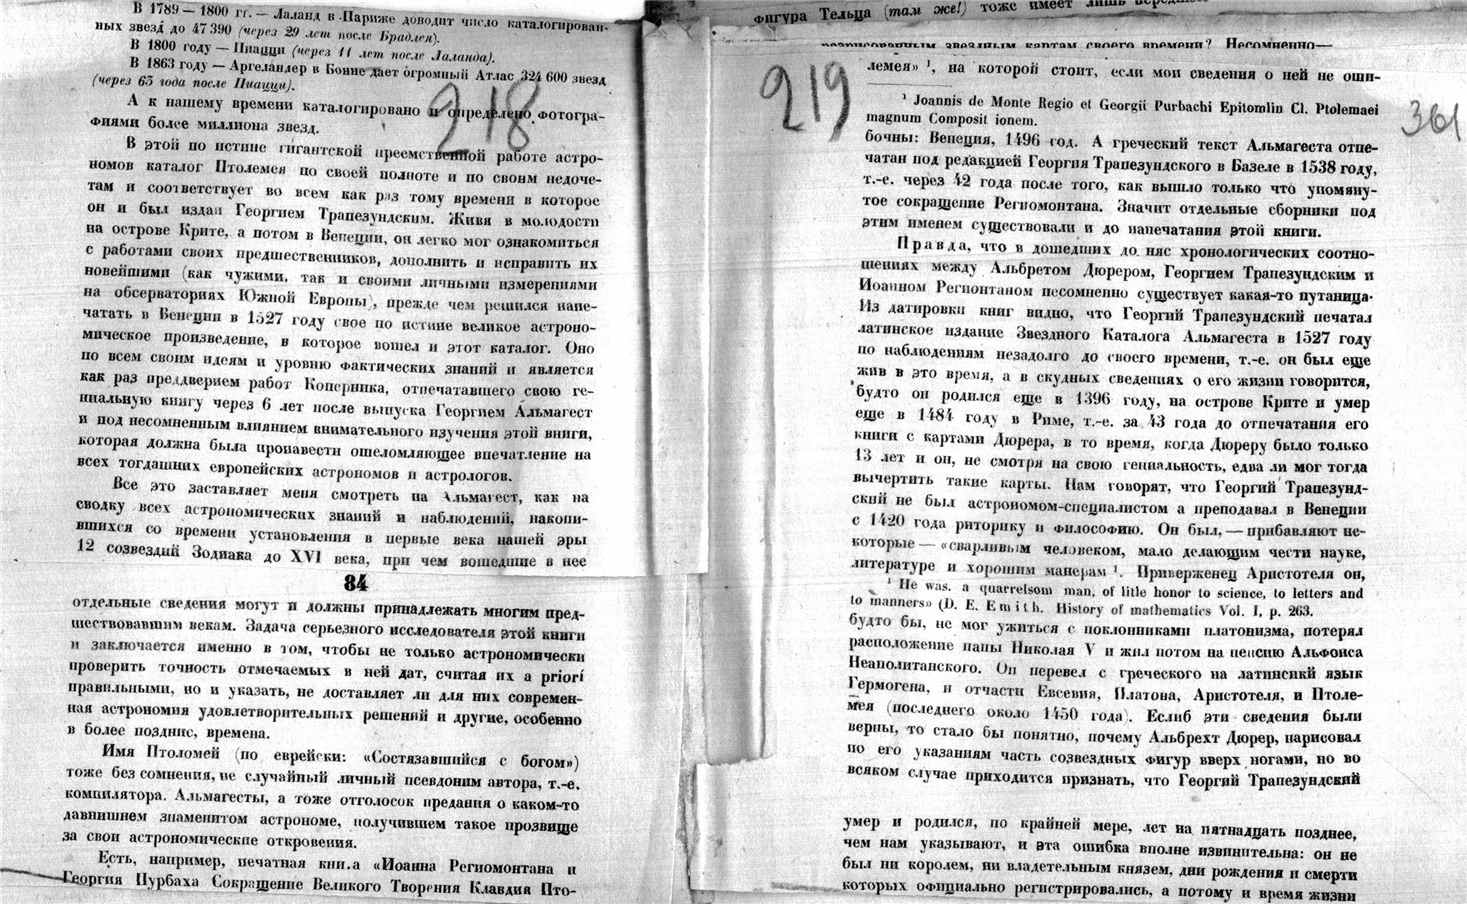 В 1789 — 1800 гг. — Лаланд в Париже доводит число каталогирован-
ных звезд до 47 390 (через 29 лет после Брадлея).
В 1800 году — Пиацци (через 11 лет после Лаланда).
В 1863 году — Аргеландер в Бонне дает огромный Атлас 324 600 звезд
(через 63 года после Пиацци).
А к нашему времени каталогировано и определено фотогра-
фиями более миллиона звезд.
218
В этой по истине гигантской преемственной работе астро-
номов каталог Птолемея по своей полноте и по своим недоче-
там и соответствует во всем как раз тому времени в которое
он и был издан Георгием Трапезундским. Живя в молодости
на острове Крите, а потом в Венеции, он легко мог ознакомиться
с работами своих предшественников, дополнить и исправить их
новейшими (как чужими, так и своими личными измерениями
на обсерваториях Южной Европы), прежде чем решился напе-
чатать в Венеции в 1527 году свое по истине великое астроно-
мическое произведение, в которое вошел и этот каталог. Оно
по всем своим идеям и уровню фактических знаний и является
как раз преддверием работ Коперника, отпечатавшего свою ге-
ниальную книгу через 6 лет после выпуска Георгием Альмагест
и под несомненным влиянием внимательного изучения этой вниги,
которая должна была произвести ошеломляющее впечатление на
всех тогдашних европейских астрономов и астрологов.
Все это заставляет меня смотреть на Альмагест, как на
сводку всех астрономических знаний и наблюдений, накопи-
вшихся со времени установления в первые века нашей эры
12 созвездий Зодиака до XVI века, при чем вошедшие в нее
84
отдельные сведения могут и должны принадлежать многим пред-
шествовавшим векам. Задача серьезного исследователя этой книги
и заключается именно в том, чтобы не только астрономически
проверить точность отмечаемых в ней дат, считая их a priori
правильными, но и указать, не доставляет ли для них современ-
ная астрономия удовлетворительных решений и другие, особенно
в более поздние, времена.
Имя Птоломей (по еврейски: «Состязавшийся с богом»)
тоже без сомнения, не случайный личный псевдоним автора, т.-е.
компилятора. Альмагесты, а тоже отголосок предания о каком-то
давнишнем знаменитом астрономе, получившем такое прозвище
за свои астрономические откровения.
Есть, например, печатная книга «Иоанна Региомонтана и
Георгия Пурбаха Сокращение Великого Творения Клавдия Пто-
фигура Тельца (там же!) тоже имеет лишь
звездным картам своего времени? Несомненно—
219
лемея» ¹, на которой стоит, если мои сведения о ней не оши-
¹ Joannis de Monte Regio et Georgii Purbachi Epitomlin Cl. Ptolemaei
magnum Composit ionem.
361
бочны: Венеция, 1496 год. А греческий текст Альмагеста отпе-
чатан под редакцией Георгия Трапезундского в Базеле в 1538 году,
т.-е. через 42 года после того, как вышло только что упомяну-
тое сокращение Региомонтана. Значит отдельные сборники под
этим именем существовали и до напечатания этой книги.
Правда, что в дошедших до нас хронологических соотно-
шениях между Альбретом Дюрером, Георгием Трапезундским и
Иоанном Регионтаном несомненно существует какая-то путаница.
Из датировки книг видно, что Георгий Трапезундский печатал
латинское издание Звездного Каталога Альмагеста в 1527 году
по наблюдениям незадолго до своего времени, т.-е. он был еще
жив в это время, а в скудных сведениях о его жизни говорится,
будто он родился еще в 1396 году, на острове Крите и умер
еще в 1484 году в Риме, т.-е. за 43 года до отпечатания его
книги с картами Дюрера, в то время, когда Дюреру было только
13 лет и он, не смотря на свою гениальность, едва ли мог тогда
вычертить такие карты. Нам говорят, что Георгий Трапезунд-
ский не был астрономом-специалистом а преподавал в Венеции
с 1420 года риторику и философию. Он был, — прибавляют не-
которые — «сварливым человеком, мало делающим чести науке,
литературе и хорошим манерам ¹. Приверженец Аристотеля он,
¹ He was. a quarrelsom man, of litle honor to science, to letters and
to manners» (D. E. Emith. History of mathematics Vol. I, p. 263.
будто бы, не мог ужиться с поклонниками платонизма, потерял
расположение папы Николая V и жил потом на пенсию Альфонса
Неаполитанского. Он перевел с греческого на латинский язык
Гермогена, и отчасти Евсевия, Платона, Аристотеля, и Птоле-
мея (последнего около 1450 года). Еслиб эти сведения были
верны, то стало бы понятно, почему Альбрехт Дюрер, нарисовал
по его указаниям часть созвездных фигур вверх ногами, но во
всяком случае приходится признать, что Георгий Трапезундский
умер и родился, по крайней мере, лет на пятнадцать позднее,
чем нам указывают, и эта ошибка вполне извинительна: он не
был ни королем, ни владетельным князем, дни рождения и смерти
которых официально регистрировались, а потому и время жизни